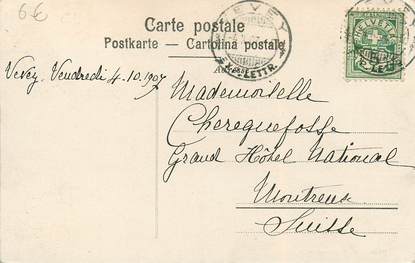 6€
Carte postale
Postkarte — Cartolina postale
VEVEY
EXP. LETTR.
Vevey, Vendredi 4.10.1907
Mademoiselle
Cherequefosse
Grand Hôtel National
Montreux
Suisse